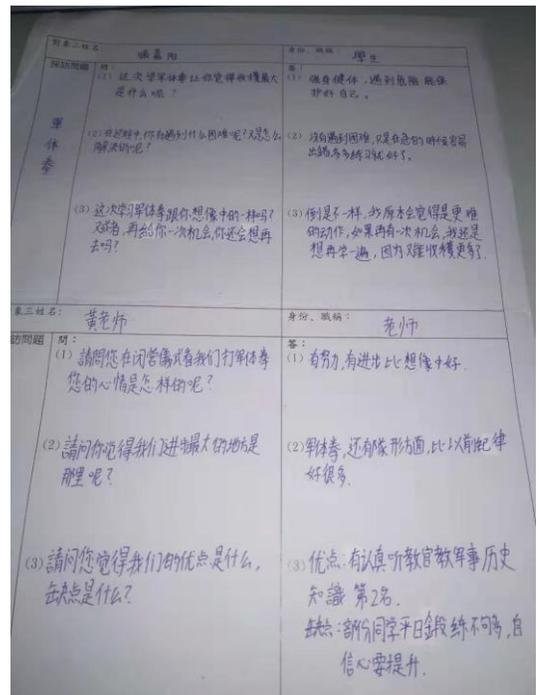 對象三姓名
張嘉阳
身份、職稱:
學生
採訪問題
軍
体
拳
問:
(1) 这次学军体拳让你觉得收穫最大
是什么呢?
答:
(1) 強身健体,遇到危險能保
护好自己。
(2) 在过程中,你有遇到什么困难呢?又是怎么
解决的呢?
(2) 没有遇到困难,只是在急的時候容易
出錯,多多练习就好了。
(3) 这次学习军体拳跟你想像中的一样吗?
又或者,再给你一次机会,你还会想再
去吗?
(3) 倒是不一样,我原本会觉得是更难
的动作,如果再有一次机会,我还是
想再学一遍,因为又难收穫更多了.
象三姓名:
黃老师
身份、職稱:
老师
訪問題
問:
(1) 請問您在闭营儀式看我们打軍体拳
您的心情是怎样的呢?
答:
(1) 有努力,有进步比想像中好.
(2) 請问你觉得我们进步最大的地方是
那里呢?
(2) 军体拳,还有隊形方面,比以前纪律
好很多.
(3) 請问您覺得我们的优点是什么,
缺点是什么?
(3) 优点:有认真听教官教军事历史
知識 第2名.
缺点:部份同学平日鍛练不句多,自
信心要提升.